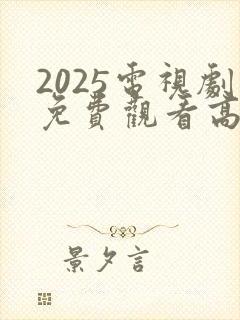 2025電視劇
免費觀看高
景夕言